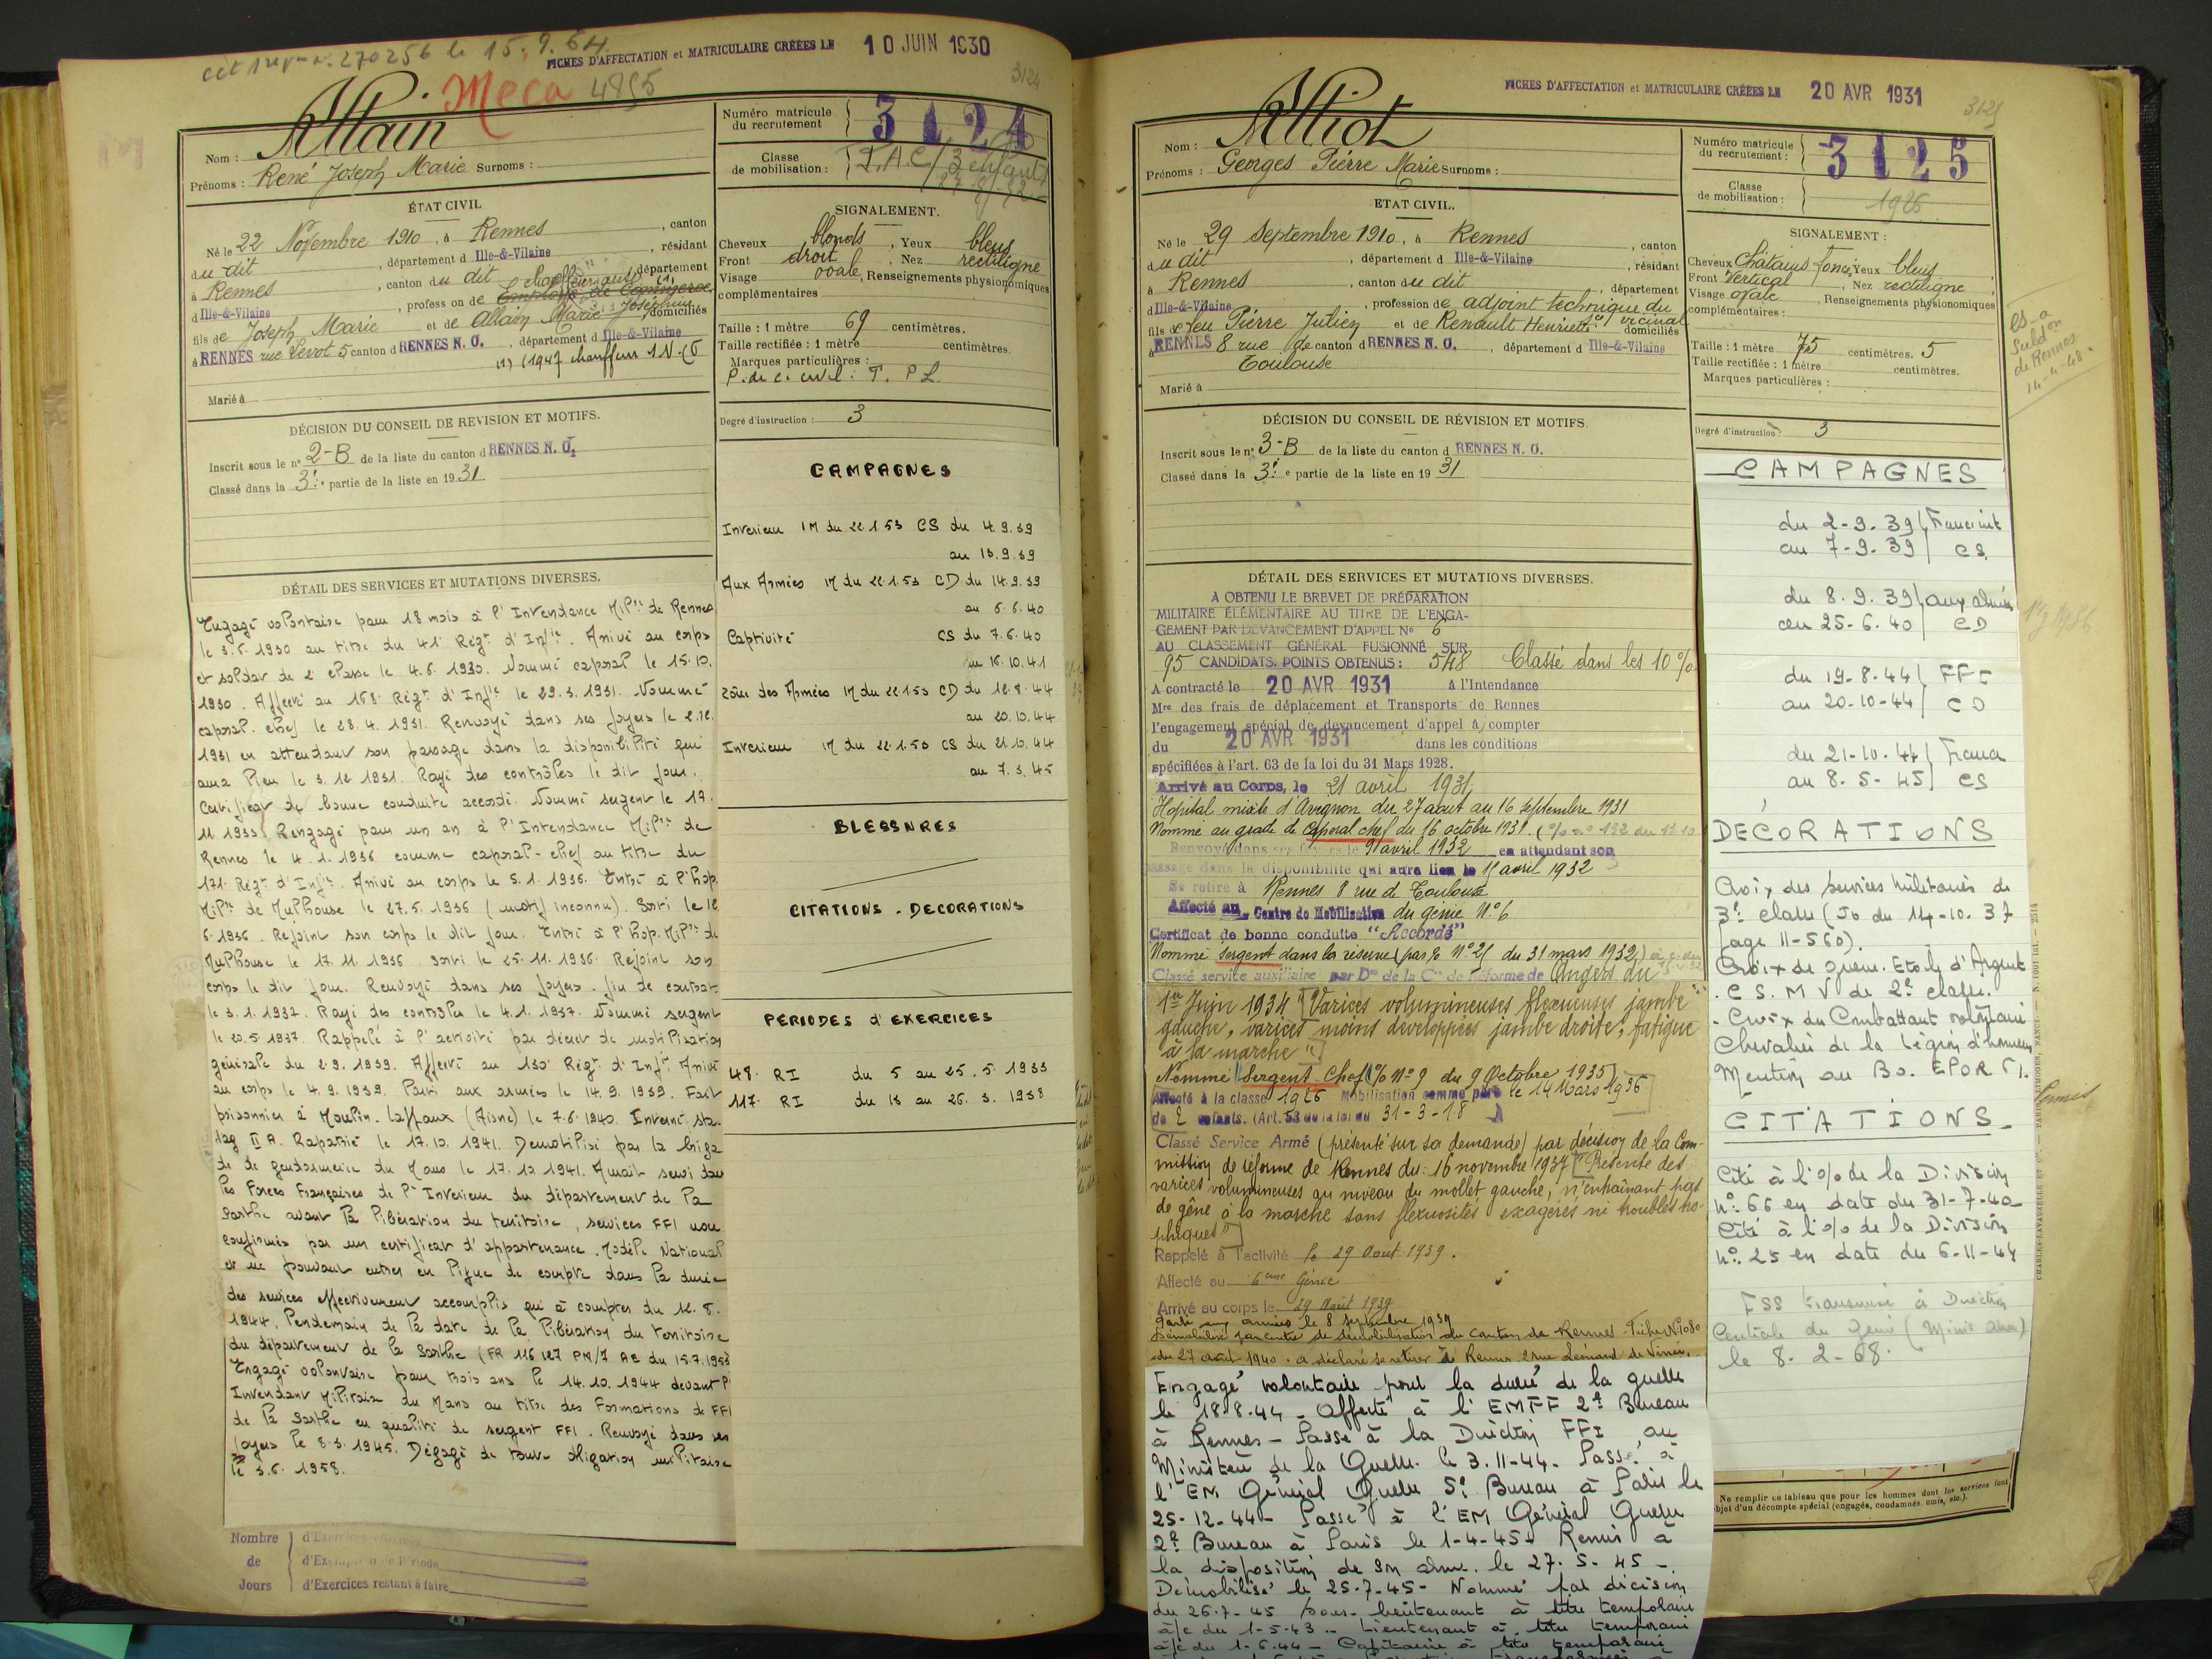 cct 1er v. n. 270256 le 15.9.64.
FICHES D'AFFECTATION et MATRICULAIRE CRÉÉES LE 10 JUIN 1930
Meca 4895
3124
Nom : Allain
Prénoms : René Joseph Marie Surnoms :
Numéro matricule du recrutement : 3124
Classe de mobilisation : P.A.C/3 enfants
ÉTAT CIVIL
Né le 22 Novembre 1910, à Rennes, canton
du dit, département d Ille-&-Vilaine, résidant
à Rennes, canton du dit, département
d Ille-&-Vilaine, profession de Employé de Commerce
fils de Joseph Marie et de Allain Marie Joséphine domiciliés
à RENNES rue Levot 5 canton d RENNES N. O., département d Ille-&-Vilaine
(1) (1947 chauffeur
Marié à
SIGNALEMENT.
Cheveux blonds, Yeux bleus
Front droit, Nez rectiligne
Visage ovale, Renseignements physionomiques
complémentaires
Taille : 1 mètre 69 centimètres.
Taille rectifiée : 1 mètre centimètres.
Marques particulières :
P. de c. civil : T. PL
Degré d'instruction : 3
DÉCISION DU CONSEIL DE REVISION ET MOTIFS.
Inscrit sous le n° 2-B de la liste du canton d RENNES N. O.
Classé dans la 3e partie de la liste en 1931
DÉTAIL DES SERVICES ET MUTATIONS DIVERSES.
Engagé volontaire pour 18 mois à l'Intendance Milre de Rennes
le 3.6.1930 au titre du 41e Régt d'Infie. Arrivé au corps
et soldat de 2e classe le 4.6.1930. Nommé caporal le 15.10.
1930. Affecté au 168e Régt d'Infie le 29.3.1931. Nommé
caporal-chef le 28.4.1931. Renvoyé dans ses foyers le 2.12.
1931 en attendant son passage dans la disponibilité qui
aura lieu le 3.12.1931. Rayé des contrôles le dit jour.
Certificat de bonne conduite accordé. Nommé sergent le 17.
11.1933. Rengagé pour un an à l'Intendance Milre de
Rennes le 4.1.1936 comme caporal-chef au titre du
171e Régt d'Infie. Arrivé au corps le 5.1.1936. Entré à l'hop.
Milre de Mulhouse le 27.5.1936 (motif inconnu). Sorti le 12
6.1936. Rejoint son corps le dit jour. Entré à l'hop. Milre de
Mulhouse le 17.11.1936. Sorti le 25.11.1936. Rejoint son
corps le dit jour. Renvoyé dans ses foyers. fin de contrat
le 3.1.1937. Rayé des contrôles le 4.1.1937. Nommé sergent
le 20.5.1937. Rappelé à l'activité par décret de mobilisation
générale du 2.9.1939. Affecté au 130e Régt d'Infie Arrivé
au corps le 4.9.1939. Parti aux armées le 14.9.1939. Fait
prisonnier à Moulin-Laffaux (Aisne) le 7.6.1940. Interné sta-
lag II A. Rapatrié le 17.10.1941. Démobilisé par la briga
de de gendarmerie du Mans le 17.10.1941. Aurait servi dans
les Forces Françaises de l'Intérieur du département de la
Sarthe avant la libération du territoire, services FFI non
confirmés par un certificat d'appartenance. Modèle National
et ne pouvant entrer en ligne de compte dans la durée
des services effectivement accomplis qu'à compter du 12.8.
1944, lendemain de la date de la libération du territoire
du département de la Sarthe (FR 116 127 PM/7 AE du 15.7.1953
Engagé volontaire pour trois ans le 14.10.1944 devant l'
Intendant Militaire du Mans au titre des Formations de FFI
de la Sarthe en qualité de sergent FFI. Renvoyé dans ses
foyers le 8.3.1945. Dégagé de toute obligation militaire
le 3.6.1958.
Nombre de Jours
d'Exercices effectués
d'Exemption de Période
d'Exercices restant à faire
CAMPAGNES
Interieur IM du 22.1.53 CS du 4.9.39
au 13.9.39
Aux Armées IM du 22.1.53 CD du 14.9.39
au 6.6.40
Captivité CS du 7.6.40
au 16.10.41
Zone des Armées IM du 22.1.53 CD du 12.8.44
au 20.10.44
Interieur IM du 22.1.53 CS du 21.10.44
au 7.3.45
BLESSURES
CITATIONS - DECORATIONS
PERIODES d'EXERCICES
48e RI du 5 au 25.5.1933
117e RI du 13 au 26.3.1938
FICHES D'AFFECTATION et MATRICULAIRE CRÉÉES LE 20 AVR 1931
3125
Nom : Alliot
Prénoms : Georges Pierre Marie Surnoms :
Numéro matricule du recrutement : 3125
Classe de mobilisation : 1926
ETAT CIVIL.
Né le 29 septembre 1910, à Rennes, canton
du dit, département d Ille-&-Vilaine, résidant
à Rennes, canton du dit, département
d Ille-&-Vilaine, profession de adjoint technique du
fils de feu Pierre Julien et de Renault Henriette domiciliés
Sce vicinal
à RENNES 8 rue de canton d RENNES N. O., département d Ille-&-Vilaine
Toulouse
Marié à
SIGNALEMENT :
Cheveux Châtains foncés Yeux bleus
Front Vertical, Nez rectiligne
Visage ovale, Renseignements physionomiques
complémentaires :
Taille : 1 mètre 75 centimètres. 5
Taille rectifiée : 1 mètre centimètres.
Marques particulières :
Degré d'instruction : 3
es-a
Subdon
de Rennes
14-4-48.
DÉCISION DU CONSEIL DE RÉVISION ET MOTIFS.
Inscrit sous le n° 3-B de la liste du canton d RENNES N. O.
Classé dans la 3e partie de la liste en 1931
DÉTAIL DES SERVICES ET MUTATIONS DIVERSES.
A OBTENU LE BREVET DE PRÉPARATION
MILITAIRE ÉLÉMENTAIRE AU TITRE DE L'ENGA-
GEMENT PAR DEVANCEMENT D'APPEL N° 6
AU CLASSEMENT GÉNÉRAL FUSIONNÉ SUR
95 CANDIDATS. POINTS OBTENUS : 548 Classé dans les 10 %
A contracté le 20 AVR 1931 à l'Intendance
Mre des frais de déplacement et Transports de Rennes
l'engagement spécial de devancement d'appel à compter
du 20 AVR 1931 dans les conditions
spécifiées à l'art. 63 de la loi du 31 Mars 1928.
Arrivé au Corps, le 21 avril 1931
Hôpital mixte d'Avignon du 27 aout au 16 septembre 1931
Nommé au grade de Caporal chef du 16 octobre 1931.
Renvoyé dans ses foyers le 9 avril 1932 en attendant son
passage dans la disponibilité qui aura lieu le avril 1932
Se retire à Rennes 8 rue de Toulouse
Affecté au Centre de Mobilisation du génie N° 6
Certificat de bonne conduite "Accordé"
Nommé Sergent dans la réserve (par % N° 21 du 31 mars 1932)
Classé service auxiliaire par Don de la Cion de Réforme de Angers du
1er Juin 1934 "Varices volumineuses flexueuses jambe
gauche, varices moins développées jambe droite, fatigue
à la marche"
Nommé Sergent Chef (% N° 9 du 9 Octobre 1935)
Affecté à la classe 1926 Mobilisation comme père le 14 Mars 1936
de 2 enfants. (Art. 58 de la loi du 31-3-18
Classé Service Armé (présenté sur sa demande) par décision de la Com-
mission de réforme de Rennes du : 16 novembre 1937 "Présente des
varices volumineuses au niveau du mollet gauche, n'entraînant pas
de gêne à la marche sans flexuosités exagérés ni troubles tro-
phiques"
Rappelé à l'activité le 29 Aout 1939.
Affecté au 6ème Génie
Arrivé au corps le 29 Août 1939
Parti aux armées le 8 septembre 1939
Démobilisé par centre de démobilisation du canton de Rennes. Fiche N° 1080
du 27 août 1940. a déclaré se retirer à Rennes 2 rue Léonard de Vinci.
Engagé volontaire pour la durée de la guerre
le 18-8-44 - Affecté à l'EMFF 2e Bureau
à Rennes - Passé à la Direction FFI au
Ministère de la Guerre le 3.11-44. Passé à
l'EM Général Guerre 5e Bureau à Paris le
25-12-44 - Passé à l'EM Général Guerre
2e Bureau à Paris le 1-4-45 - Remis à
la disposition de son arme le 27-5-45 -
Démobilisé le 25-7-45 - Nommé par décision
du 26-7-45 sous-lieutenant à titre temporaire
a/c du 1-5-43 - Lieutenant à titre temporaire
a/c du 1-6-44 - Capitaine à titre temporaire
CAMPAGNES
du 2-9-39 France int
au 7-9-39 CS.
du 8-9-39 aux armées
au 25-6-40 CD
du 19-8-44 FFI
au 20-10-44 CD
du 21-10-44 France
au 8-5-45 CS
DÉCORATIONS
Croix des services militaires de
3e classe (JO du 14-10-37
page 11-560).
Croix de guerre. Etoile d'Argent
. C S. M V de 2e classe.
- Croix du Combattant volontaire
Chevalier de la Légion d'honneur
CITATIONS.
Cité à l'% de la Division
N° 66 en date du 31-7-40
Cité à l'% de la Division
N° 25 en date du 6-11-44
FSS transmise à Direction
Centrale du Génie
le 8-2-68.
Ne remplir ce tableau que pour les hommes dont les services font
objet d'un décompte spécial (engagés, condamnés, omis, etc.).